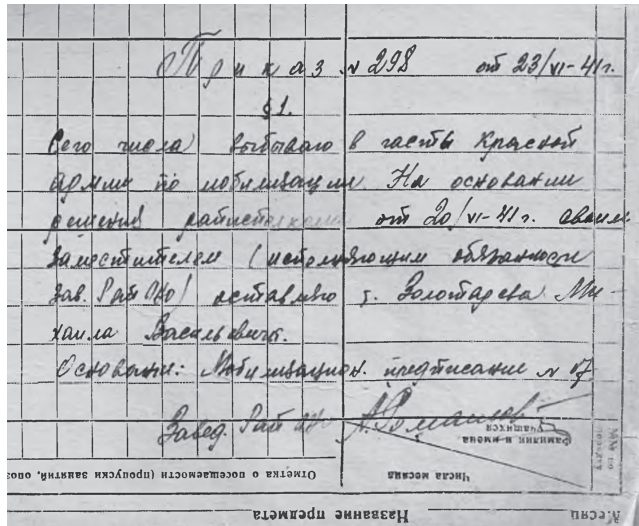 Приказ № 298 от 23/VI-41 г.
§1.
Сего числа выбываю в части Красной
Армии по мобилизации. На основании
решения райисполкома от 20/VI-41 г. своим
Заместителем (исполняющим обязанности
Зав. РайОНО) оставляю т. Золотарева Ми
хаила Васильевича.
Основание: Мобилизацион. предписание №
Завед. РайОНО А. Романов
Фамилия и имена
учащихся
№№ по
порядку
Отметка о посещаемости (пропуски занятий, опоз
Числа месяца
Название предмета
Месяц